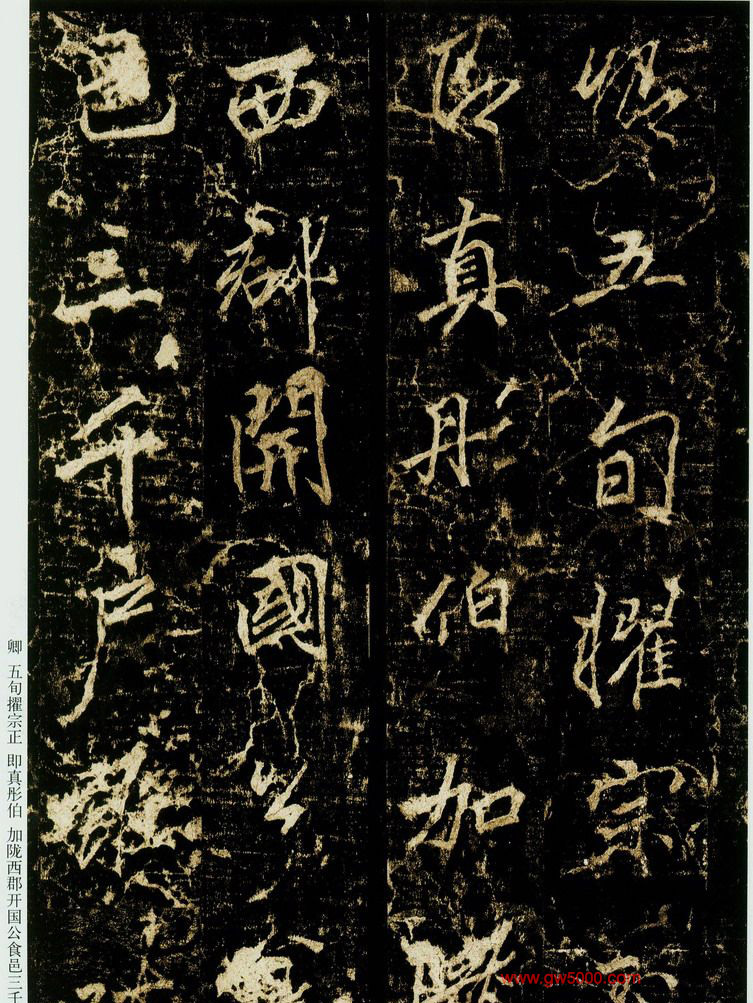 卿五旬擢宗
即真彤伯加
西郡開國公
邑三千戶
卿 五旬擢宗正 即真彤伯 加陇西郡开国公食邑三千
www.gw5000.com